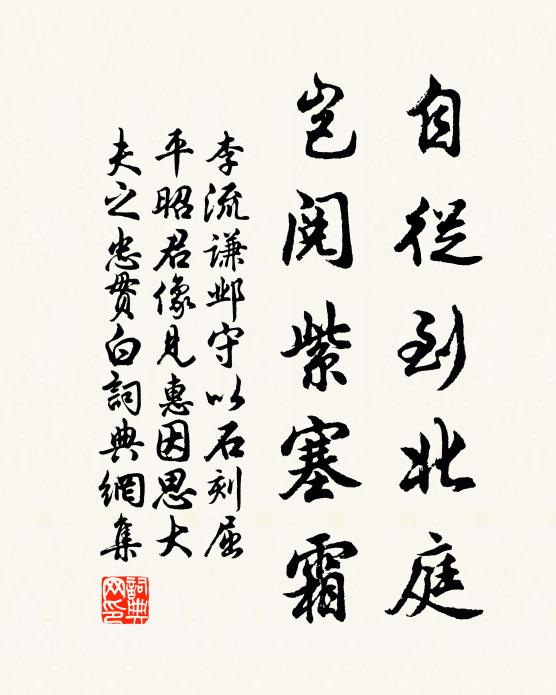 自從到北庭
豈閱紫塞霜
李流謙邺守以石刻屈
平昭君像見惠因思大
夫之忠貫白詞典網集
詞典
网印